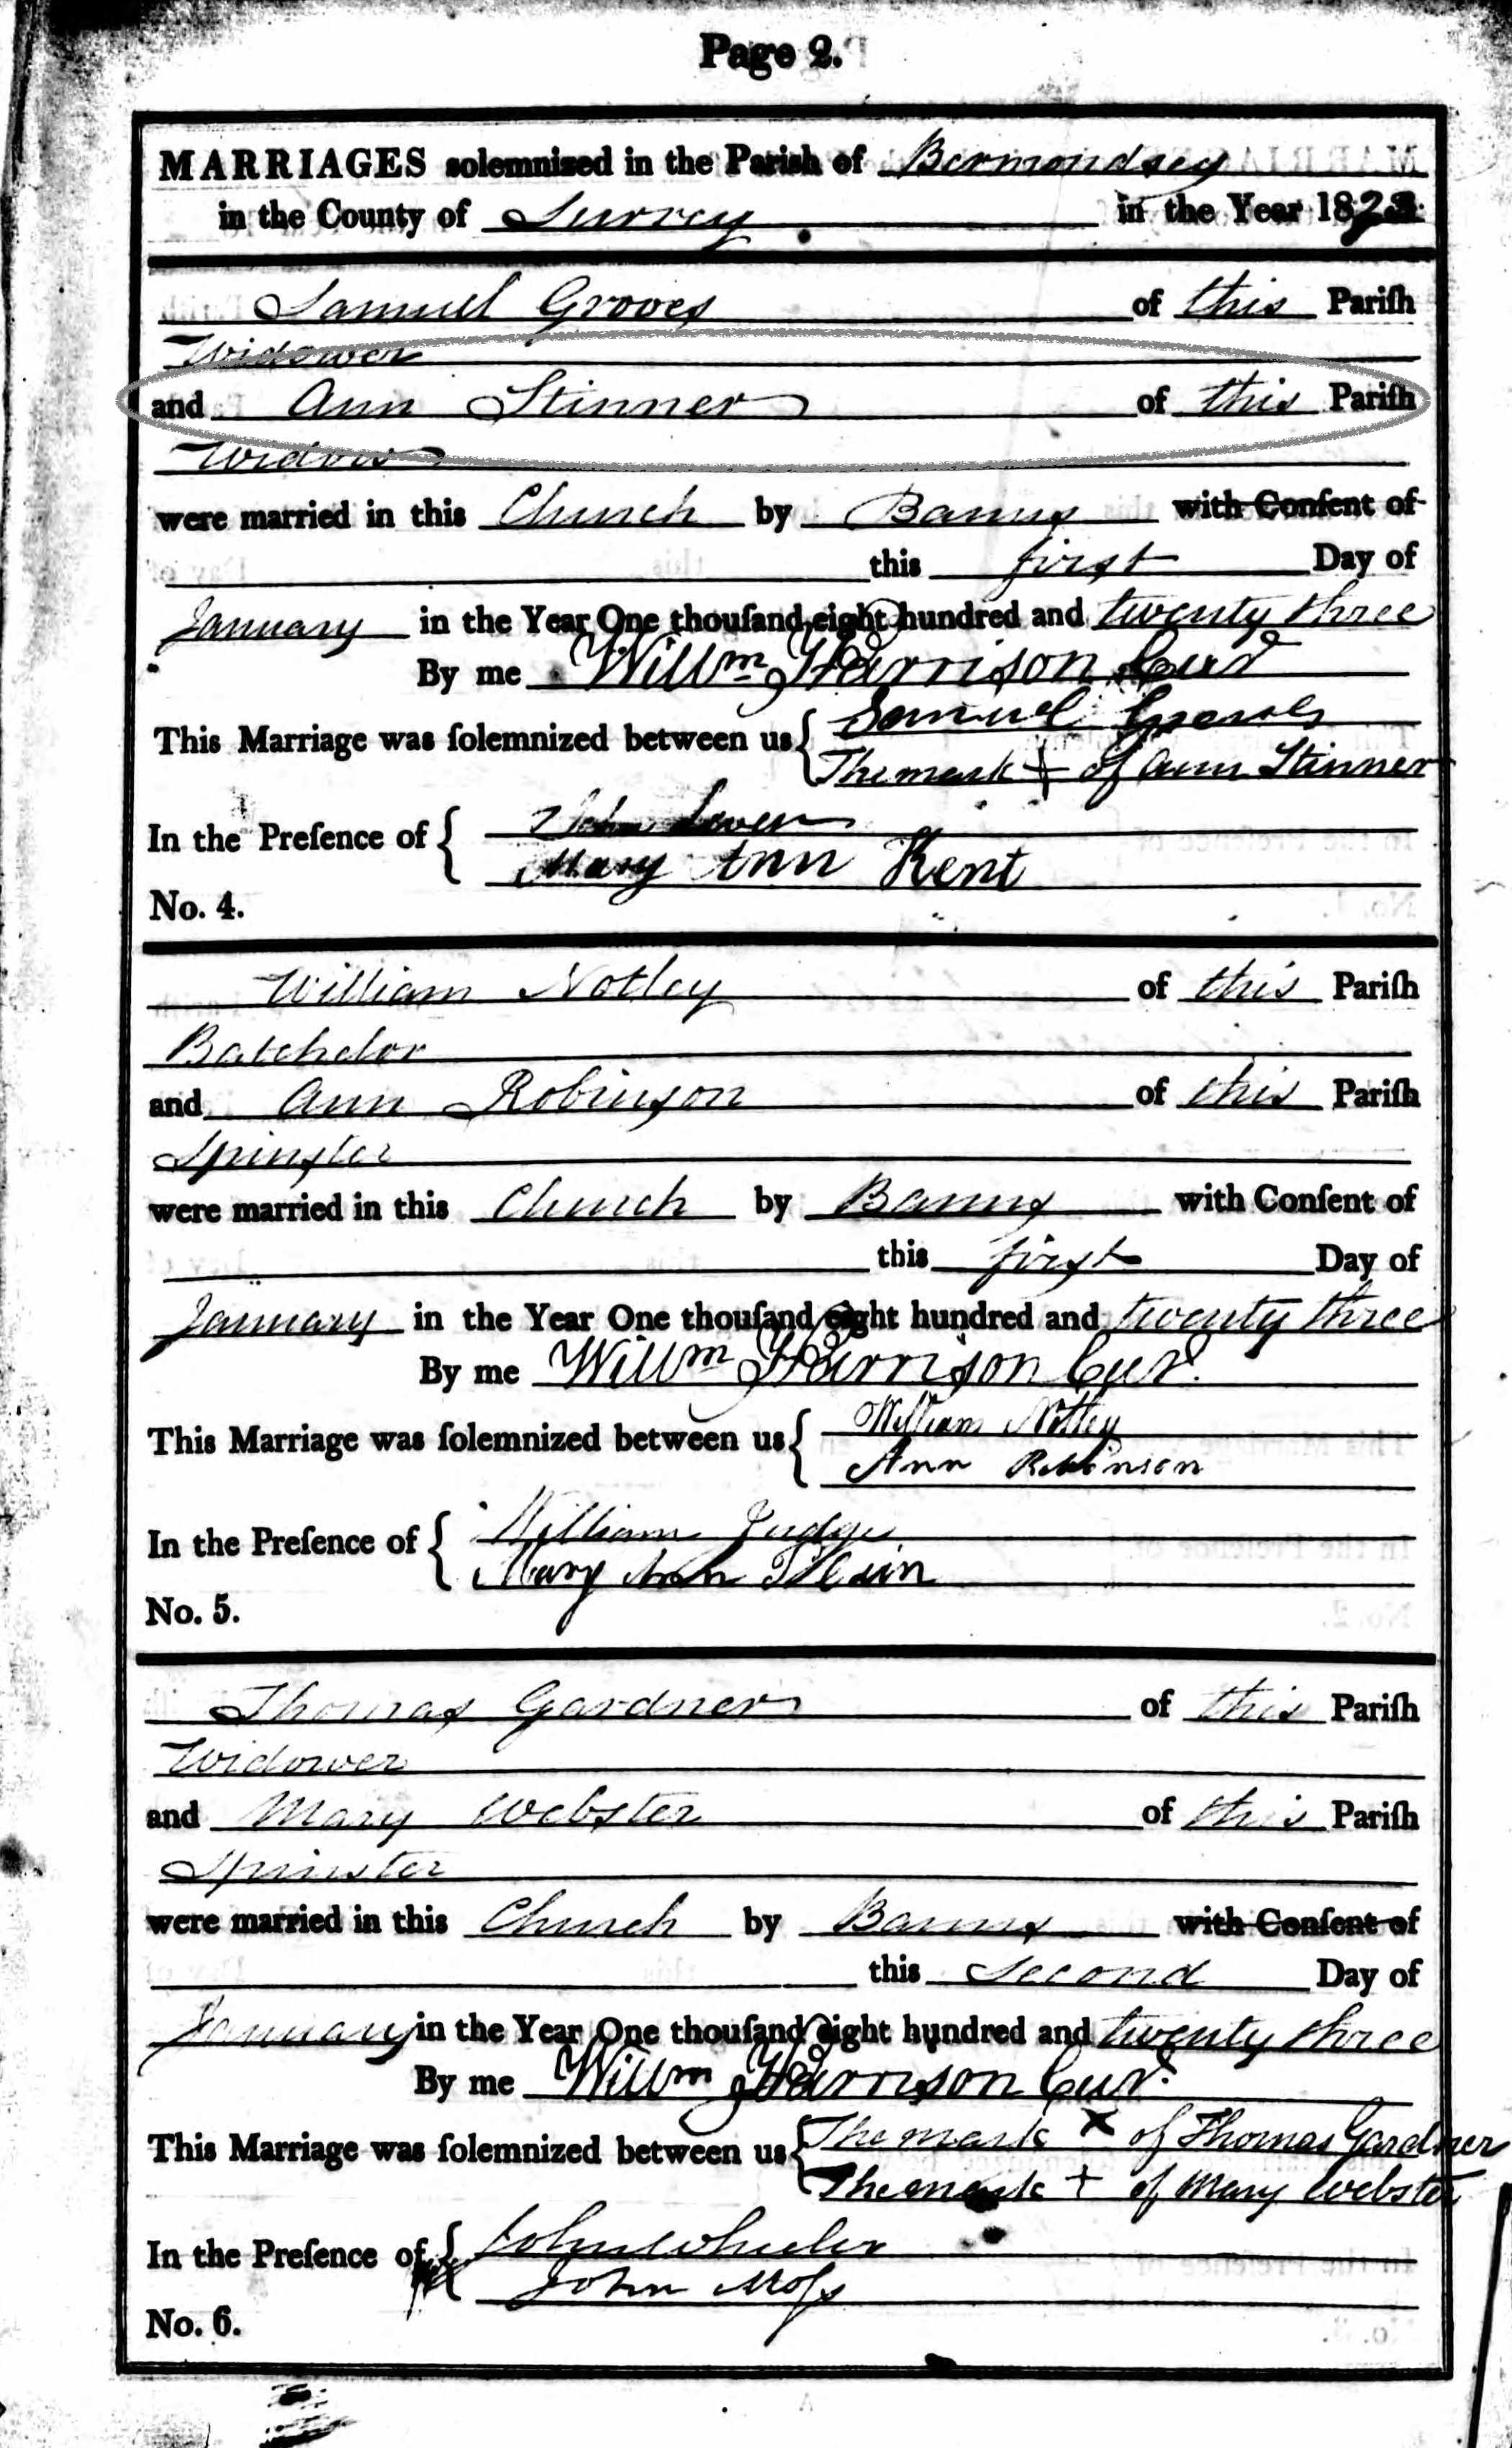 Page 2.
MARRIAGES solemnized in the Parish of Bermondsey
in the County of Surrey in the Year 1823
Samuel Groves of this Pariſh
Widower
and Ann Stinner of this Pariſh
Widow
were married in this Church by Banns with Conſent of
this first Day of
January in the Year One thouſand eight hundred and twenty three
By me Willm Harrison Cur
This Marriage was ſolemnized between us { Samuel Groves
The mark + of Ann Stinner
In the Preſence of { John
Mary Ann Kent
No. 4.
William Notley of this Pariſh
Batchelor
and Ann Robinson of this Pariſh
Spinster
were married in this Church by Banns with Conſent of
this first Day of
January in the Year One thouſand eight hundred and twenty three
By me Willm Harrison Cur.
This Marriage was ſolemnized between us { William Notley
Ann Robinson
In the Preſence of { William Judge
Mary Ann
No. 5.
Thomas Gardner of this Pariſh
Widower
and Mary Webster of this Pariſh
Spinster
were married in this Church by Banns with Conſent of
this Second Day of
January in the Year One thouſand eight hundred and twenty three
By me Willm Harrison Cur.
This Marriage was ſolemnized between us { The mark X of Thomas Gardner
The mark + of Mary Webster
In the Preſence of { John Wheeler
John Moſs
No. 6.